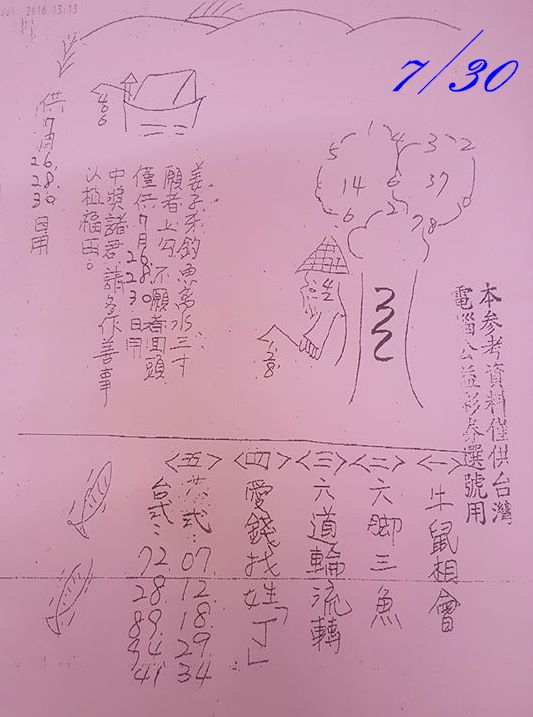 Jul 2016 13:13
7/30
400
供7月26.28.30日用
姜子釣魚离水三寸
願者上勾 不願者回頭
僅供7月26 28 30日用
中獎諸君請多作善事
以植福田。
5 1 4 3 2
14 6 37
6 2 7 8 0
本参考資料僅供台灣
電腦公益彩券選號用
<一>牛鼠相會
<二>六脚三魚
<三>六道輪流轉
<四>愛錢找姓「丁」
<五>式：07 12 18 29 34
台式：72 28 89 94 41